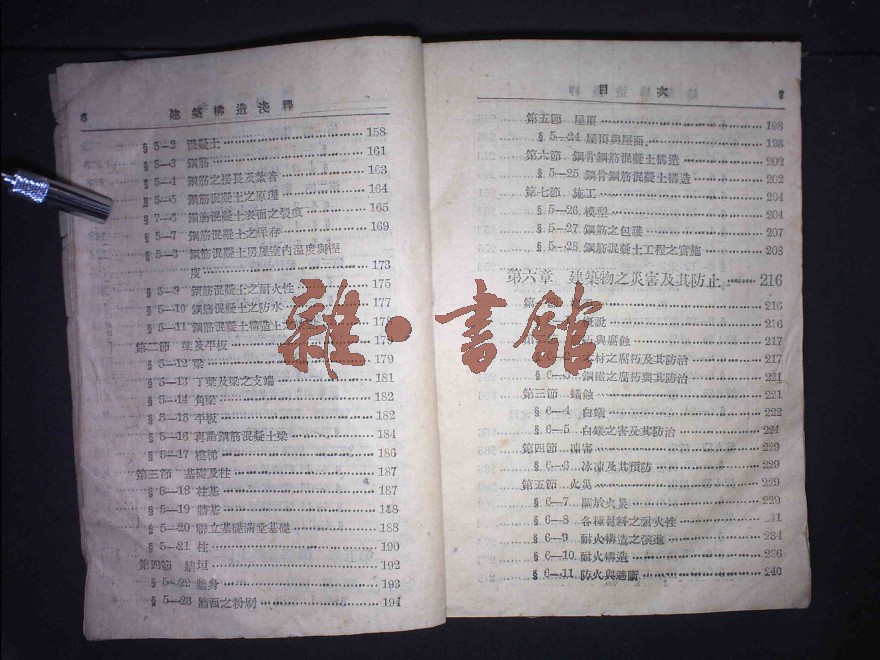 6 建築構造淺釋
§5—2 混凝土 158
§5—3 鋼筋 161
§5—4 鋼筋之接長及紮着 163
§5—5 鋼筋混凝土之原理 164
§5—6 鋼筋混凝土表面之裂痕 165
§5—7 鋼筋混凝土之保存 169
§5—8 鋼筋混凝土房屋室內溫度與
度 173
§5—9 鋼筋混凝土之耐火性 175
§5—10 鋼筋混凝土之防水 177
§5—11 鋼筋混凝土構造上
第二節 梁及平板
§5—12 梁 179
§5—13 丁梁及梁之支端 181
§5—14 角梁 182
§5—15 平板 182
§5—16 鋼筋混凝土梁 184
§5—17 樓梯 186
第三節 基礎及柱 187
§5—18 柱基 187
§5—19 牆基 188
§5—20 聯立基礎滿堂基礎 188
§5—21 柱 190
第四節 牆垣 192
§5—22 牆身 193
§5—23 牆面之粉刷 194
目次 7
第五節 屋頂 198
§5—24 屋頂與屋面 198
第六節 鋼骨鋼筋混凝土構造 202
§5—25 鋼骨鋼筋混凝土構造 202
第七節 施工 204
§5—26 模型 204
§5—27 鋼筋之包護 207
§5—28 鋼筋混凝土工程之實施 208
第六章 建築物之災害及其防止 216
第一 216
概說 216
與腐蝕 217
§6—2 木材之腐朽及其防治 217
§6—3 鋼鐵之腐朽與其防治 221
第三節 蟻蝕 221
§6—4 白蟻 222
§6—5 白蟻之害及其防治 224
第四節 凍害 229
§6—6 冰凍及其預防 229
第五節 火災 229
§6—7 關於火災 229
§6—8 各種材料之耐火性 231
§6—9 耐火構造之演進 234
§6—10 耐火構造 236
§6—11 防火與遮斷 240
雜·書館